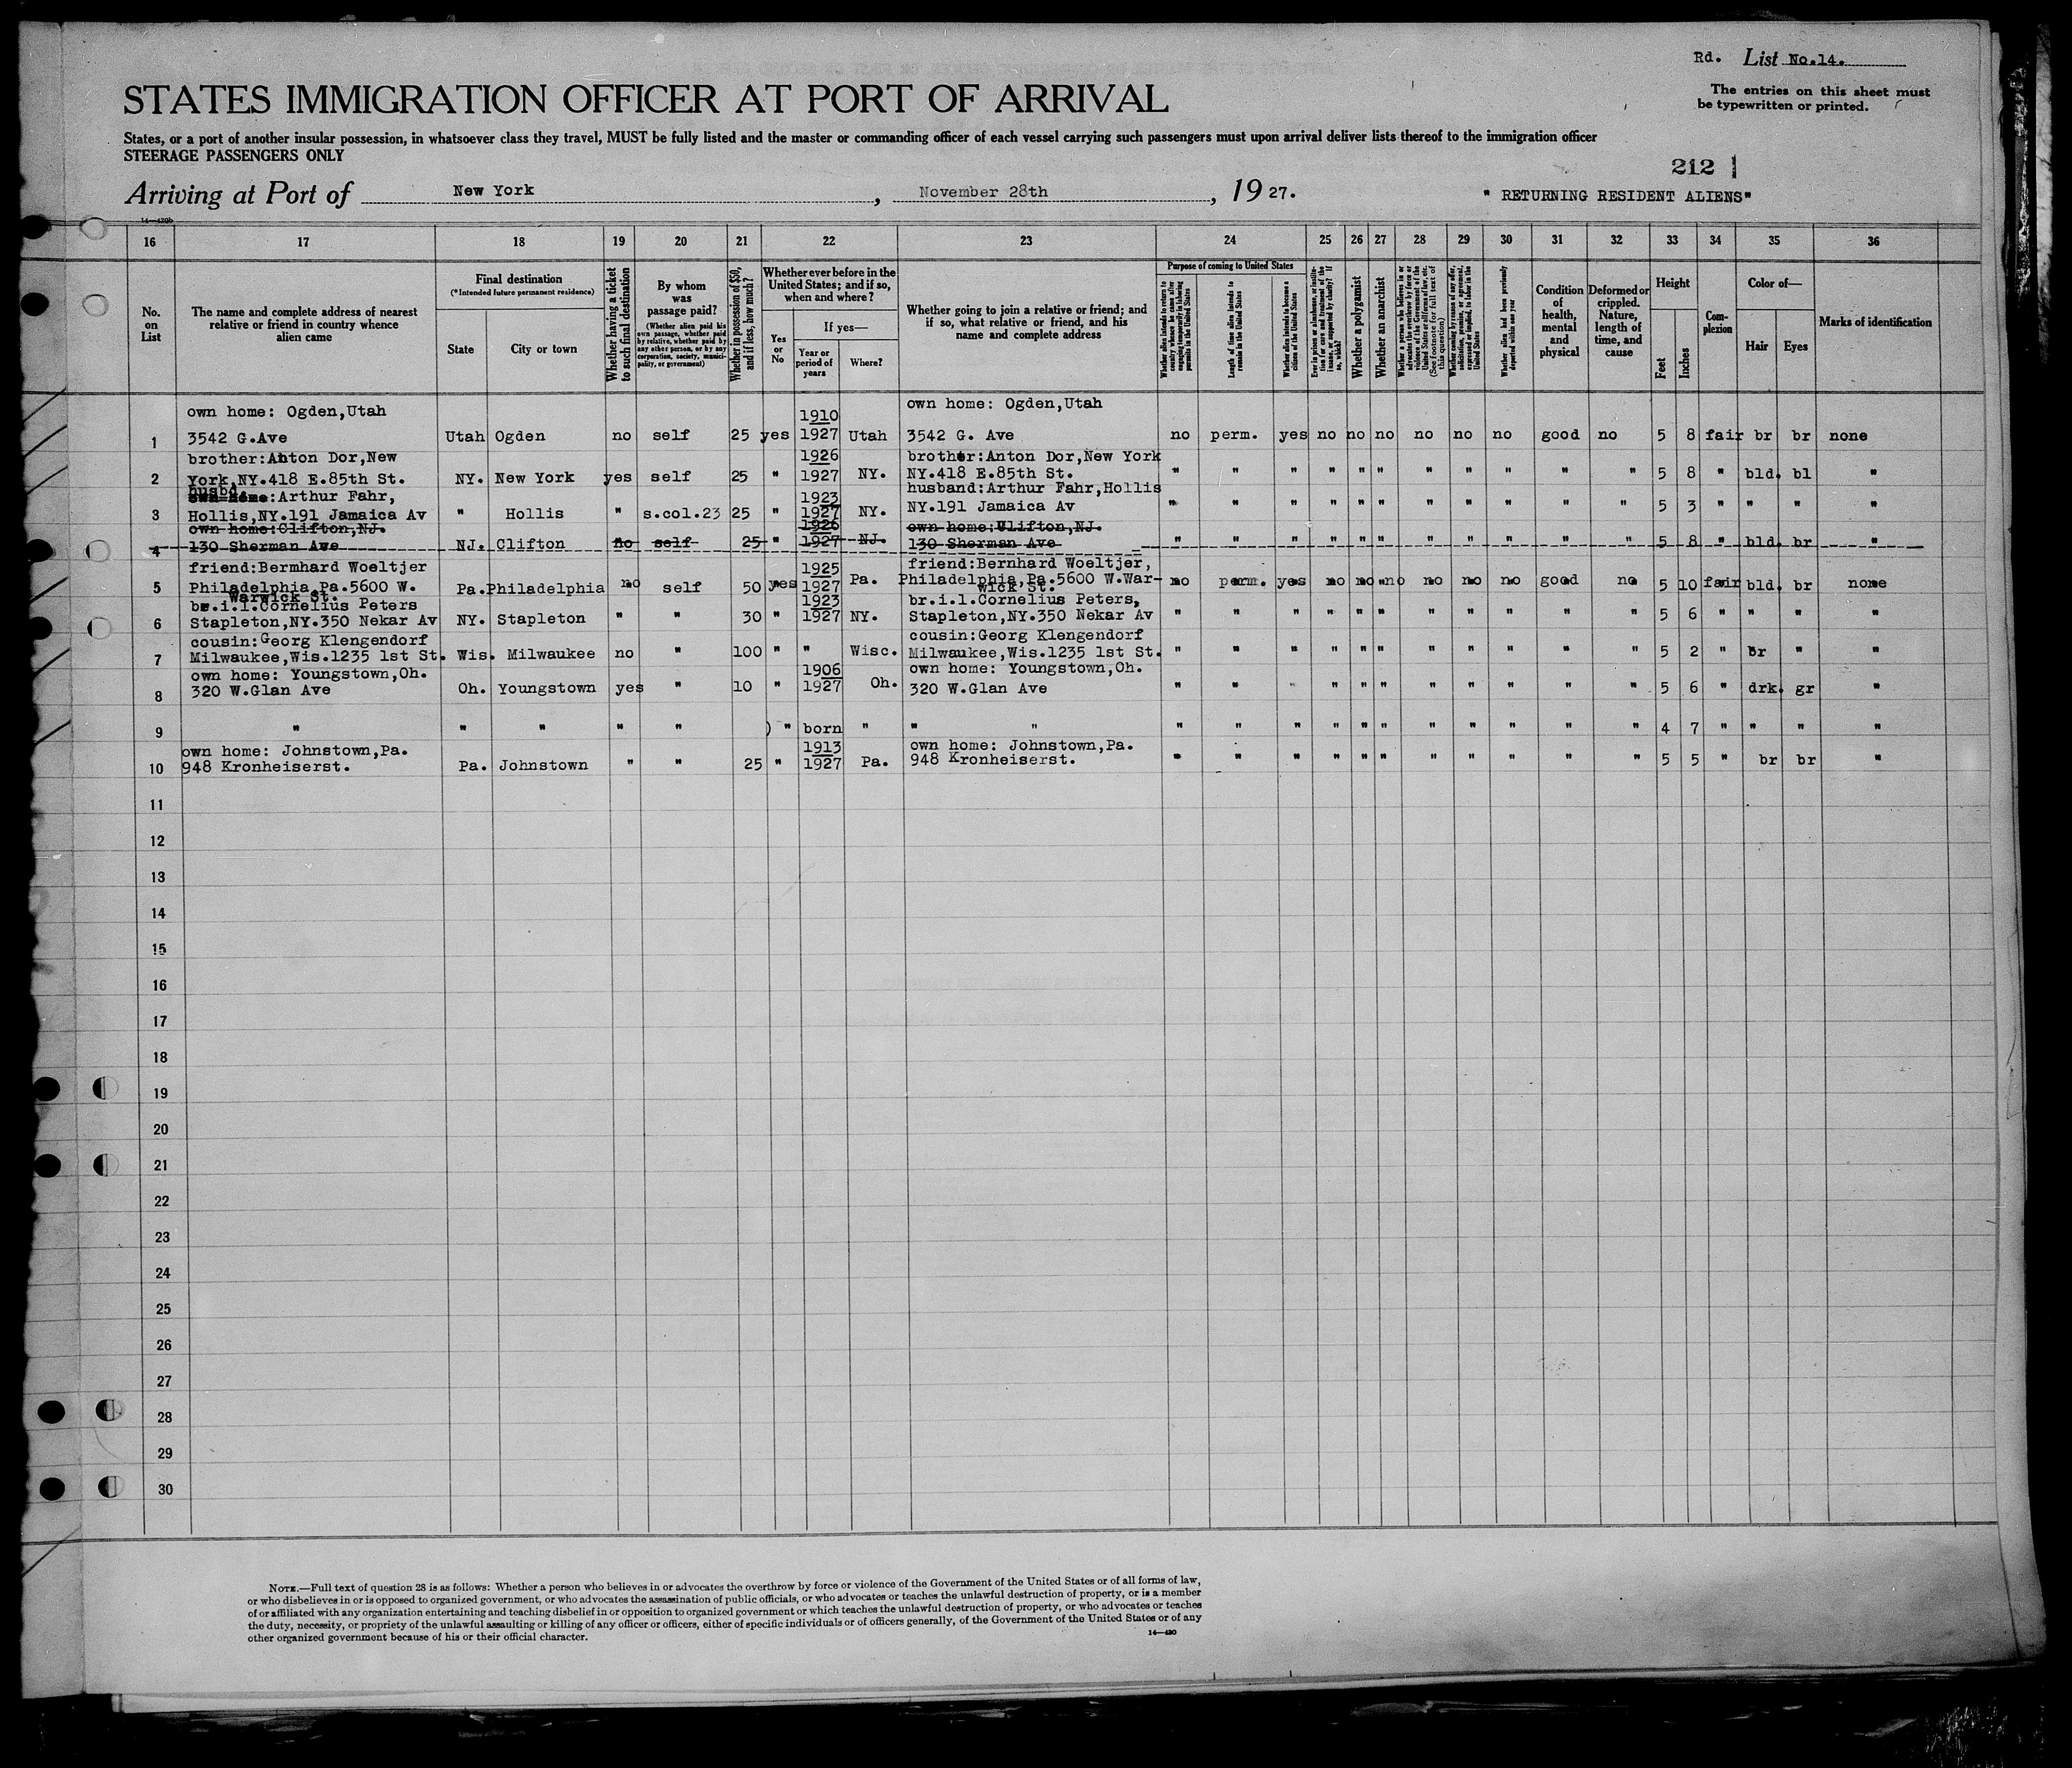 Rd. List No.14.
The entries on this sheet must
be typewritten or printed.
STATES IMMIGRATION OFFICER AT PORT OF ARRIVAL
States, or a port of another insular possession, in whatsoever class they travel, MUST be fully listed and the master or commanding officer of each vessel carrying such passengers must upon arrival deliver lists thereof to the immigration officer
STEERAGE PASSENGERS ONLY
212
Arriving at Port of New York, November 28th, 1927. " RETURNING RESIDENT ALIENS"
14—430b
16 17 18 19 20 21 22 23 24 25 26 27 28 29 30 31 32 33 34 35 36
No. on List
The name and complete address of nearest relative or friend in country whence alien came
Final destination
(*Intended future permanent residence)
State
City or town
Whether having a ticket to such final destination
By whom was passage paid?
(Whether alien paid his own passage, whether paid by relative, whether paid by any other person, or by any corporation, society, municipality, or government)
Whether in possession of $50, and if less, how much?
Whether ever before in the United States; and if so, when and where?
Yes or No
If yes—
Year or period of years
Where?
Whether going to join a relative or friend; and if so, what relative or friend, and his name and complete address
Purpose of coming to United States
Whether alien intends to return to country whence he came after engaging temporarily in laboring pursuits in the United States
Length of time alien intends to remain in the United States
Whether alien intends to become a citizen of the United States
Ever in prison or almshouse, or institution for care and treatment of the insane, or supported by charity? If so, which?
Whether a polygamist
Whether an anarchist
Whether a person who believes in or advocates the overthrow by force or violence of the Government of the United States or all forms of law, etc. (See footnote for full text of this question)
Whether coming by reason of any offer, solicitation, promise, or agreement, expressed or implied, to labor in the United States
Whether alien had been previously deported within one year
Condition of health, mental and physical
Deformed or crippled. Nature, length of time, and cause
Height
Feet
Inches
Complexion
Color of—
Hair
Eyes
Marks of identification
own home: Ogden,Utah 1910 own home: Ogden,Utah
1 3542 G.Ave Utah Ogden no self 25 yes 1927 Utah 3542 G. Ave no perm. yes no no no no no no good no 5 8 fair br br none
brother:Anton Dor,New 1926 brother:Anton Dor,New York
2 York,NY.418 E.85th St. NY. New York yes self 25 " 1927 NY. NY.418 E.85th St. " " " " " " " " " " " 5 8 " bld. bl "
husbd own home:Arthur Fahr, 1923 husband:Arthur Fahr,Hollis
3 Hollis,NY.191 Jamaica Av " Hollis " s.col.23 25 " 1927 NY. NY.191 Jamaica Av " " " " " " " " " " " 5 3 " " " "
own home:Clifton,NJ. 1926 own home:Clifton,NJ.
4 130 Sherman Ave NJ. Clifton no self 25 " 1927 NJ. 130 Sherman Ave " " " " " " " " " " " 5 8 " bld. br "
friend:Bermhard Woeltjer 1925 friend:Bernhard Woeltjer,
5 Philadelphia,Pa.5600 W. Pa. Philadelphia no self 50 yes 1927 Pa. Philadelphia,Pa.5600 W.War- no perm. yes no no "no no no no good no 5 10 fair bld. br none
Warwick St. wick St.
br.i.l.Cornelius Peters 1923 br.i.l.Cornelius Peters,
6 Stapleton,NY.350 Nekar Av NY. Stapleton " " 30 " 1927 NY. Stapleton,NY.350 Nekar Av " " " " " " " " " " " 5 6 " " " "
cousin:Georg Klengendorf cousin:Georg Klengendorf
7 Milwaukee,Wis.1235 1st St. Wis. Milwaukee no " 100 " " Wisc. Milwaukee,Wis.1235 1st St. " " " " " " " " " " " 5 2 " br " "
own home: Youngstown,Oh. 1906 own home: Youngstown,Oh.
8 320 W.Glan Ave Oh. Youngstown yes " 10 " 1927 Oh. 320 W.Glan Ave " " " " " " " " " " " 5 6 " drk. gr "
9 " " " " " ) " born " " " " " " " " " " " " " " " 4 7 " " " "
own home: Johnstown,Pa. 1913 own home: Johnstown,Pa.
10 948 Kronheiserst. Pa. Johnstown " " 25 " 1927 Pa. 948 Kronheiserst. " " " " " " " " " " " 5 5 " br br "
11
12
13
14
15
16
17
18
19
20
21
22
23
24
25
26
27
28
29
30
NOTE.—Full text of question 28 is as follows: Whether a person who believes in or advocates the overthrow by force or violence of the Government of the United States or of all forms of law,
or who disbelieves in or is opposed to organized government, or who advocates the assassination of public officials, or who advocates or teaches the unlawful destruction of property, or is a member
of or affiliated with any organization entertaining and teaching disbelief in or opposition to organized government or which teaches the unlawful destruction of property, or who advocates or teaches
the duty, necessity, or propriety of the unlawful assaulting or killing of any officer or officers, either of specific individuals or of officers generally, of the Government of the United States or of any
other organized government because of his or their official character.
14—430